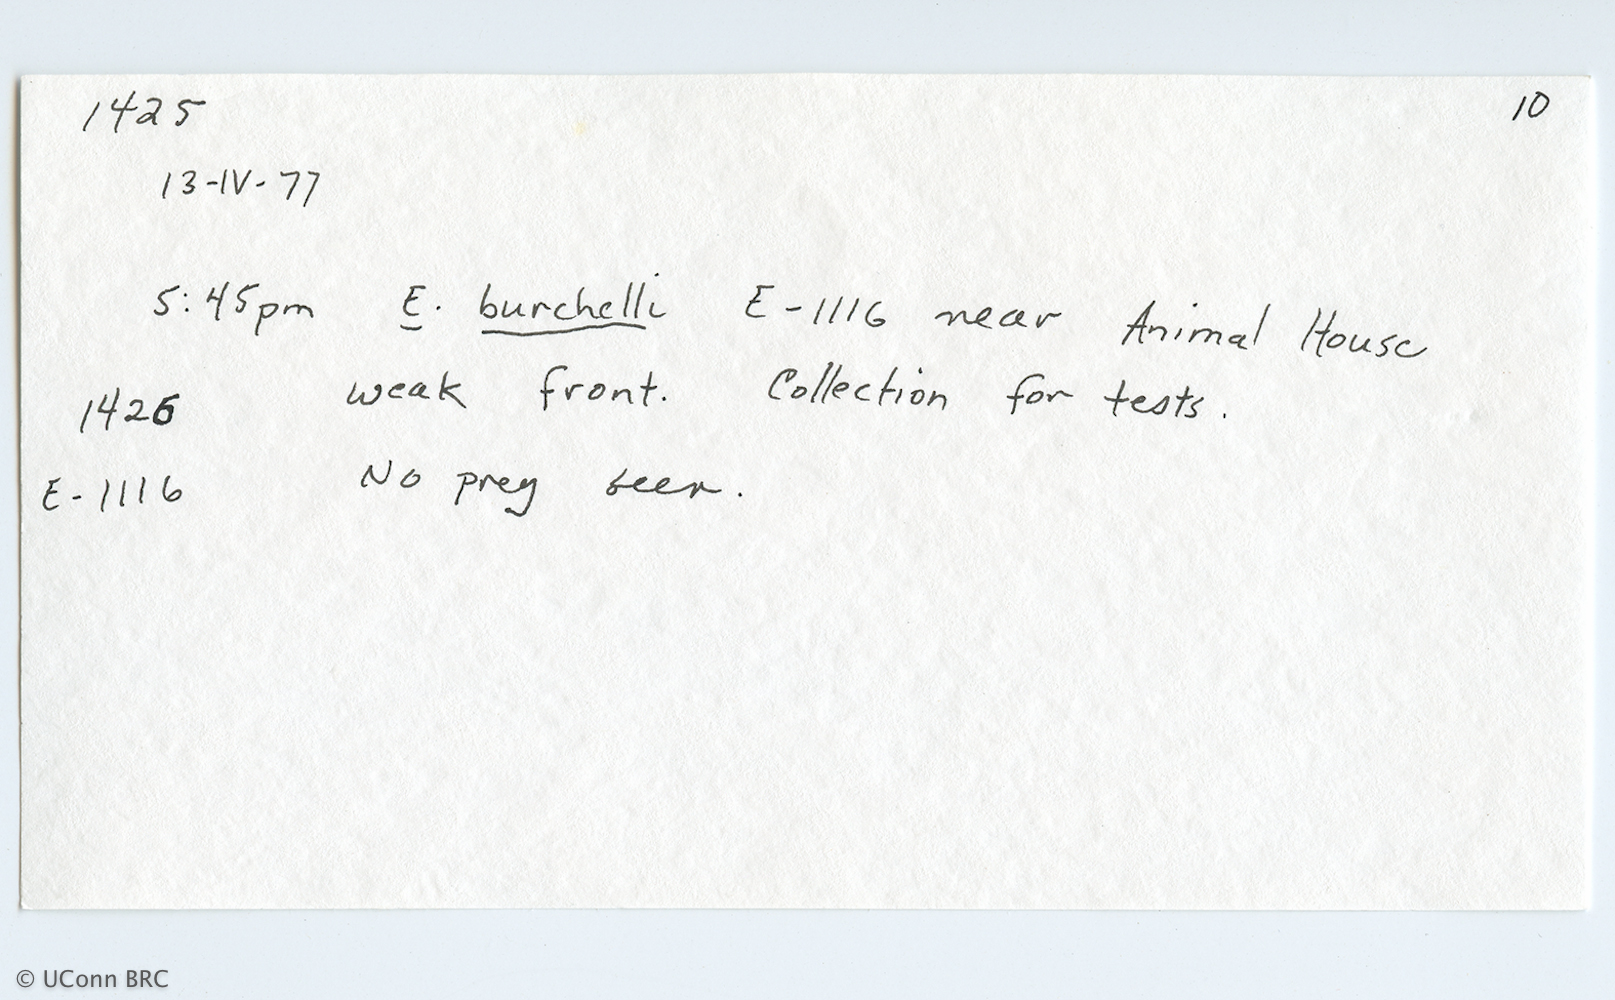 1425 10
13-IV-77
5:45pm E. burchelli E-1116 near Animal House
1426 weak front. Collection for tests.
E-1116 No prey seen.
© UConn BRC